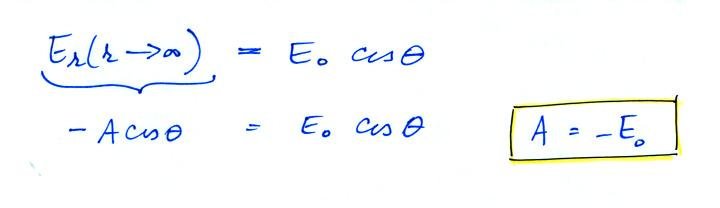 Er(r→∞) = E₀ cosθ
- A cosθ = E₀ cosθ A = -E₀